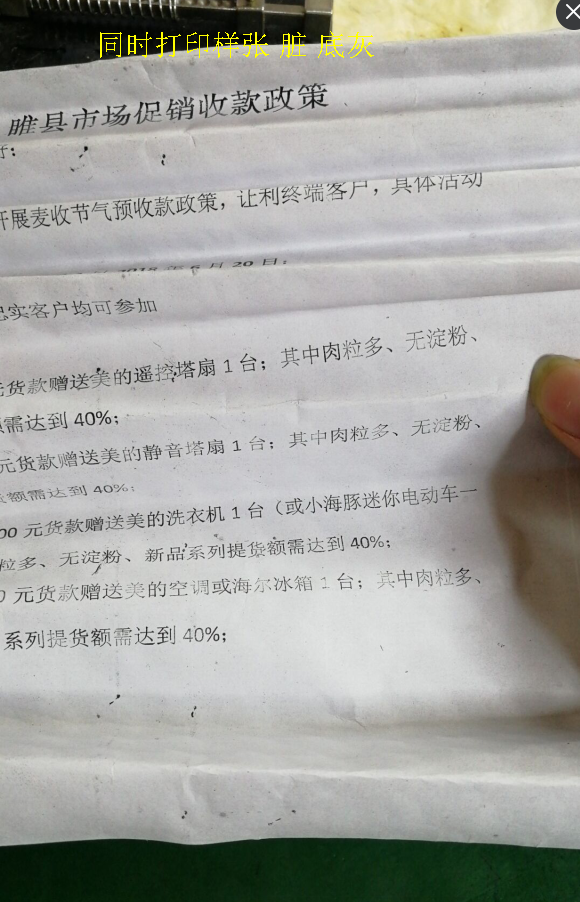 同时打印样张 脏 底灰
睢县市场促销收款政策
开展麦收节气预收款政策，让利终端客户，具体活动
年6月20日；
忠实客户均可参加
元货款赠送美的遥控塔扇1台；其中肉粒多、无淀粉、
额需达到40%；
元货款赠送美的静音塔扇1台；其中肉粒多、无淀粉、
货额需达到40%；
00元货款赠送美的洗衣机1台（或小海豚迷你电动车一
粒多、无淀粉、新品系列提货额需达到40%；
0元货款赠送美的空调或海尔冰箱1台；其中肉粒多、
系列提货额需达到40%；